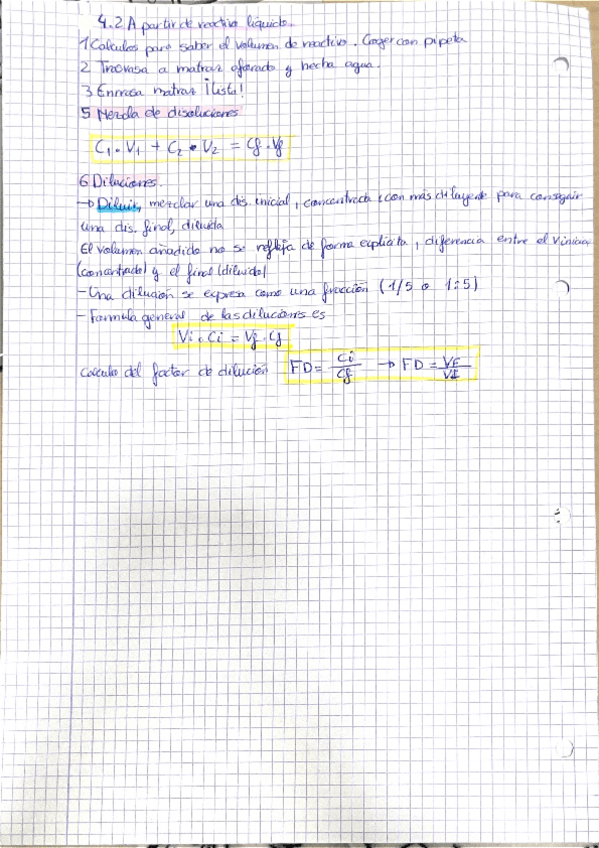 4.2 A partir de reactivo líquido.
1 Calculos para saber el volumen de reactivo. Coger con pipeta
2 Trasvasa a matraz aforado y hecha agua.
3 Enrasa matraz ¡listo!
5 Mezcla de disoluciones
C1 · V1 + C2 · V2 = Cf · Vf
6 Diluciones.
→ Diluir, mezclar una dis. inicial, concentrada, con más diluyente para conseguir
una dis. final, diluida
El volumen añadido no se refleja de forma explicita, diferencia entre el V inicial
(concentrado) y el final (diluido)
- Una dilución se expresa como una fracción (1/5 o 1:5)
- Formula general de las diluciones es
Vi · Ci = Vf · Cf
Calculo del factor de dilución FD = Ci/Cf → FD = VF/VI